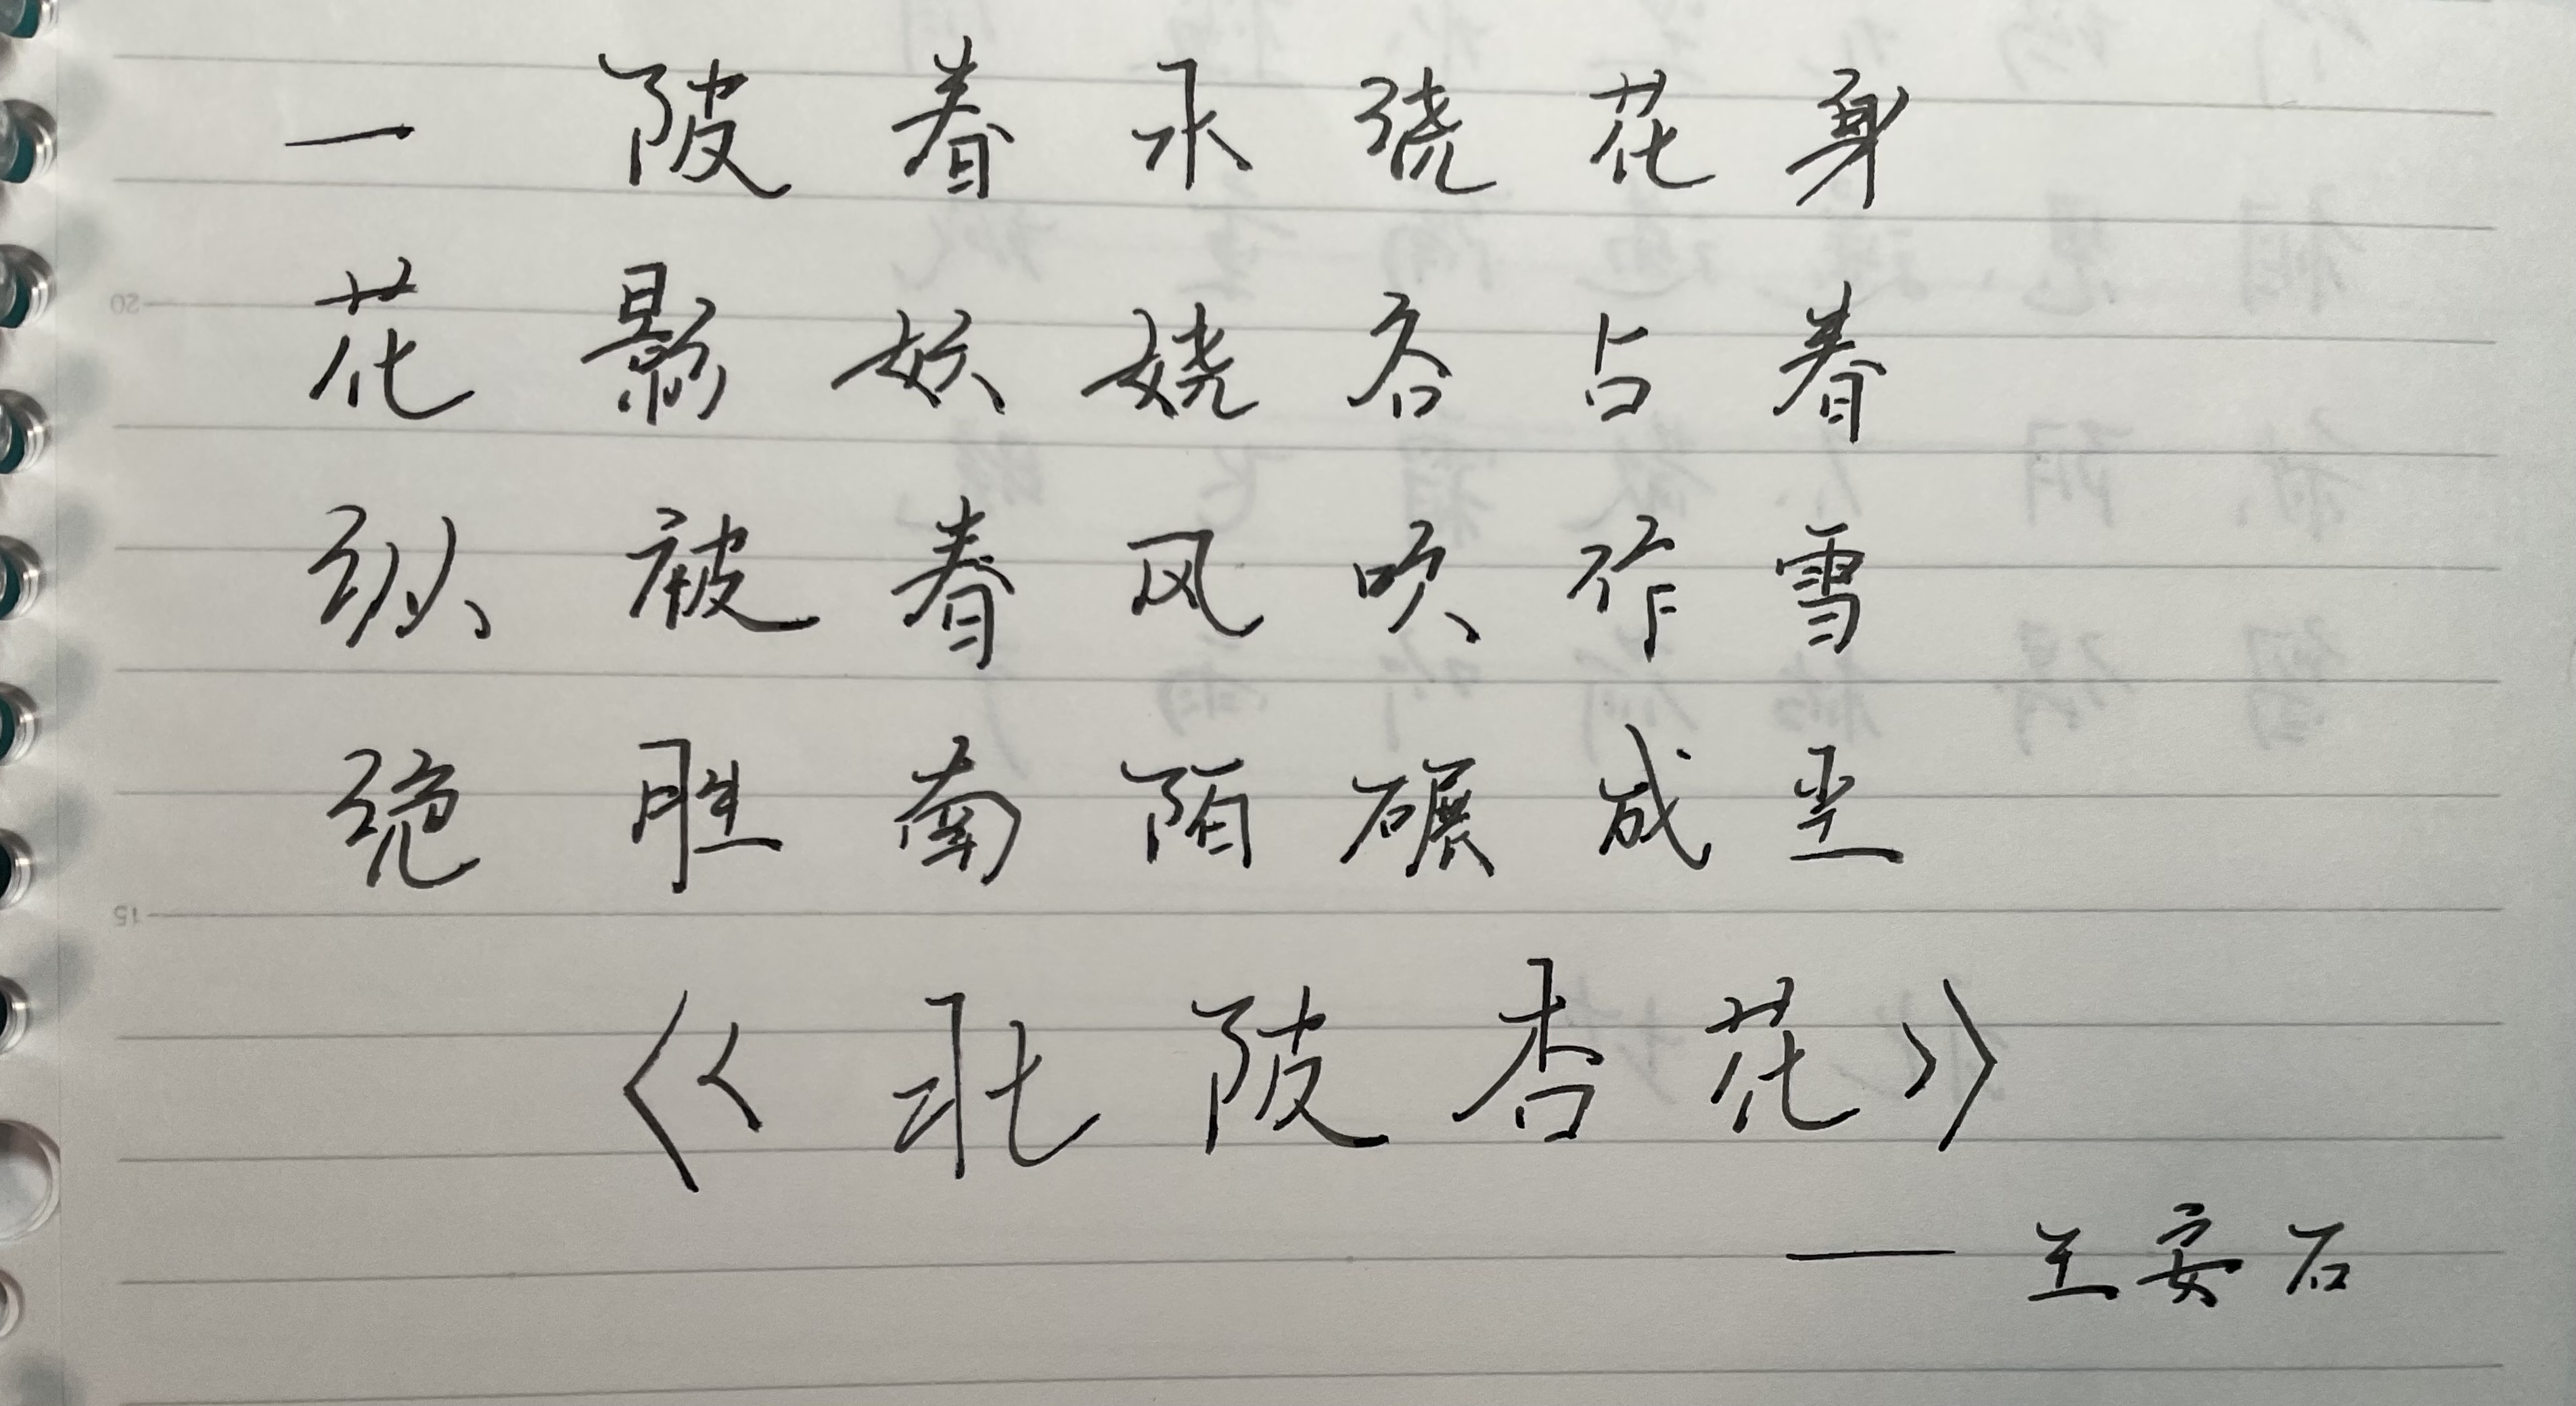 一陂春水绕花身
花影妖娆各占春
纵被春风吹作雪
绝胜南陌碾成尘
《北陂杏花》
—王安石
20
15